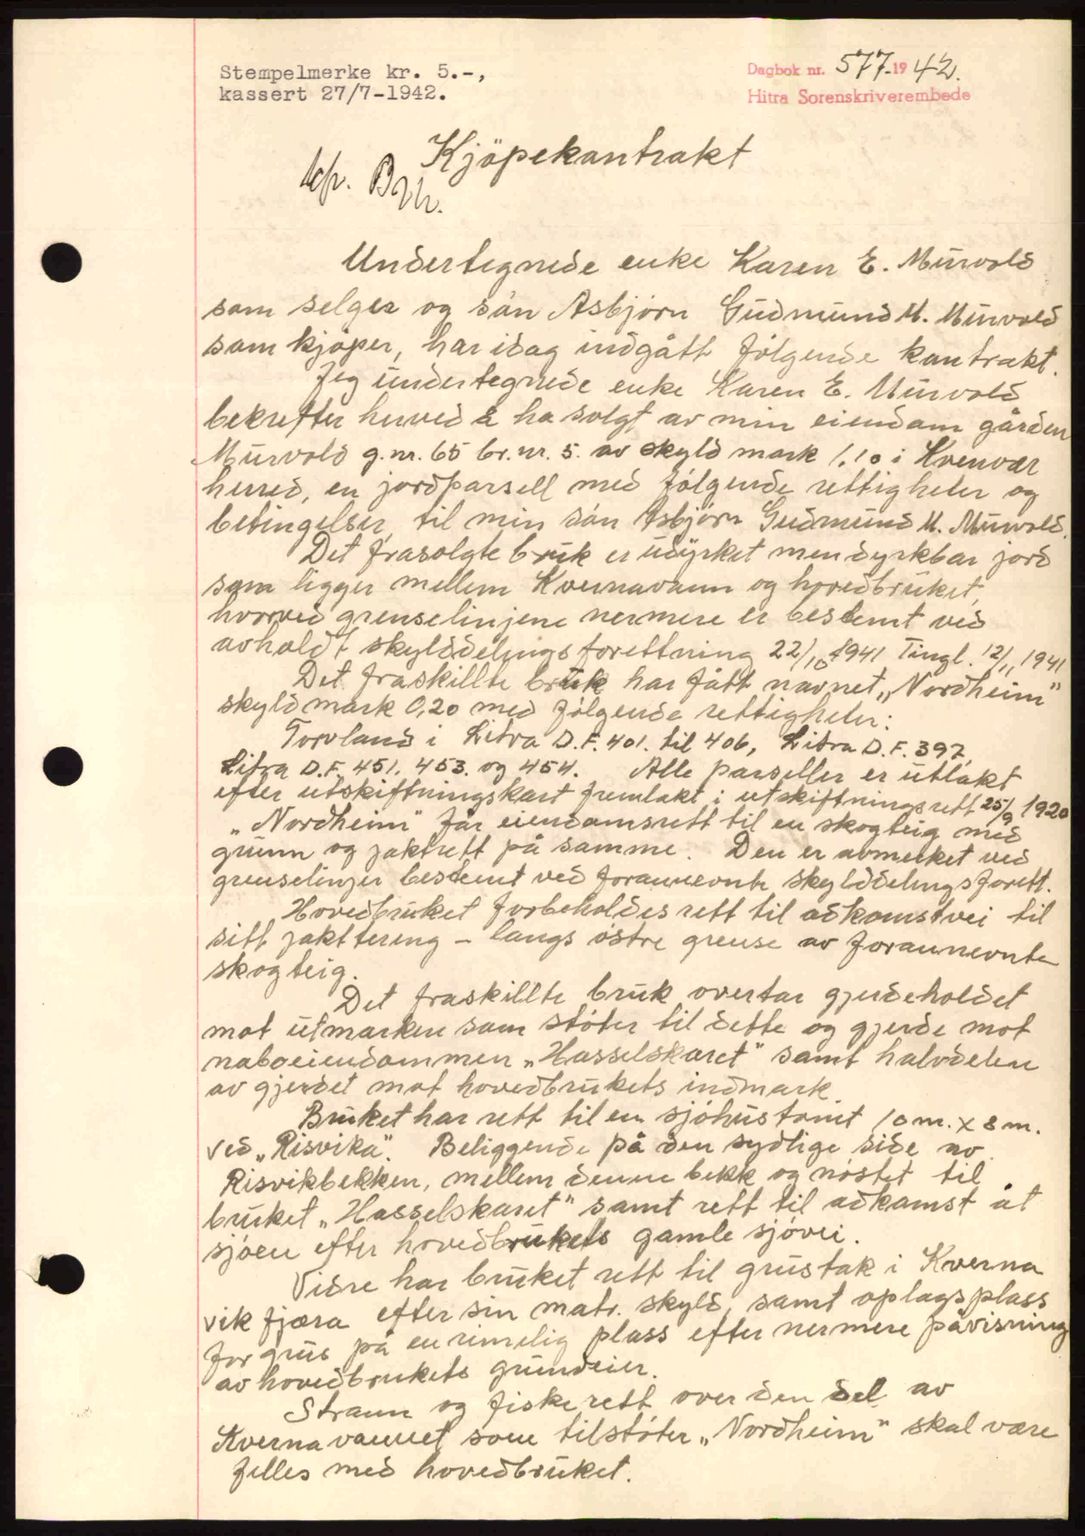 Stempelmerke kr. 5.-,
kassert 27/7-1942.
Dagbok nr. 577. 1942.
Hitra Sorenskriverembede
Kjöpekontrakt
Undertegnede enke Karen E. Murvold
som selger og sön Asbjörn Gudmund M. Murvold
som kjöper, har idag indgått fölgende kontrakt.
Jeg undertegnede enke Karen E. Murvold
bekrefter herved å ha solgt av min eiendom gården
Murvold g.nr. 65 br.nr. 5. av skyld mark 1,10 i Kvenvær
herred, en jordparsell med fölgende rettigheter og
betingelser, til min sön Asbjörn Gudmund M. Murvold.
Det frasolgte bruk er udyrket men dyrkbar jord
som ligger mellem Kvernavann og hovedbruket,
hvorved grenselinjene nermere er bestemt ved
avholdt skylddelingsforettning 22/10 1941 Tingl. 12/11 1941
Det fraskillte bruk har fått navnet „Nordheim"
skyld mark 0,20 med fölgende rettigheter:
Torvland i Litra D.F. 401. til 406, Litra D.F. 397,
Litra D.F. 451. 453. og 454. Alle parseller er utlakt
efter utskiftningskart fremlakt i utskiftningsrett 25/9 1920
„Nordheim" får eiendomsrett til en skogteig med
grunn og jaktrett på samme. Den er avmerket ved
grenselinjer bestemt ved forannevnte skylddelingsforett.
Hovedbruket forbeholdes rett til adkomstvei til
sitt jaktterreng - langs östre grense av forannevnte
skogteig.
Det fraskillte bruk overtar gjerdeholdet
mot utmarken som stöter til dette og gjerde mot
naboeiendommen „Hasselskaret" samt halvdelen
av gjerdet mot hovedbrukets indmark.
Bruket har rett til en sjöhustomt 10 m. x 8 m.
ved „Risvika". Beliggende på den sydlige side av
Risvikbekken, mellem denne bekk og nöstet til
bruket „Hasselskaret" samt rett til adkomst åt
sjöen efter hovedbrukets gamle sjövei.
Vidre har bruket rett til grustak i Kverna
vik fjæra efter sin matr. skyld, samt oplagsplass
for grus på en rimelig plass efter nermere påvisning
av hovedbrukets grundeier.
Strann og fiskerett over den del av
Kvernavannet som tilstöter „Nordheim" skal være
felles med hovedbruket.